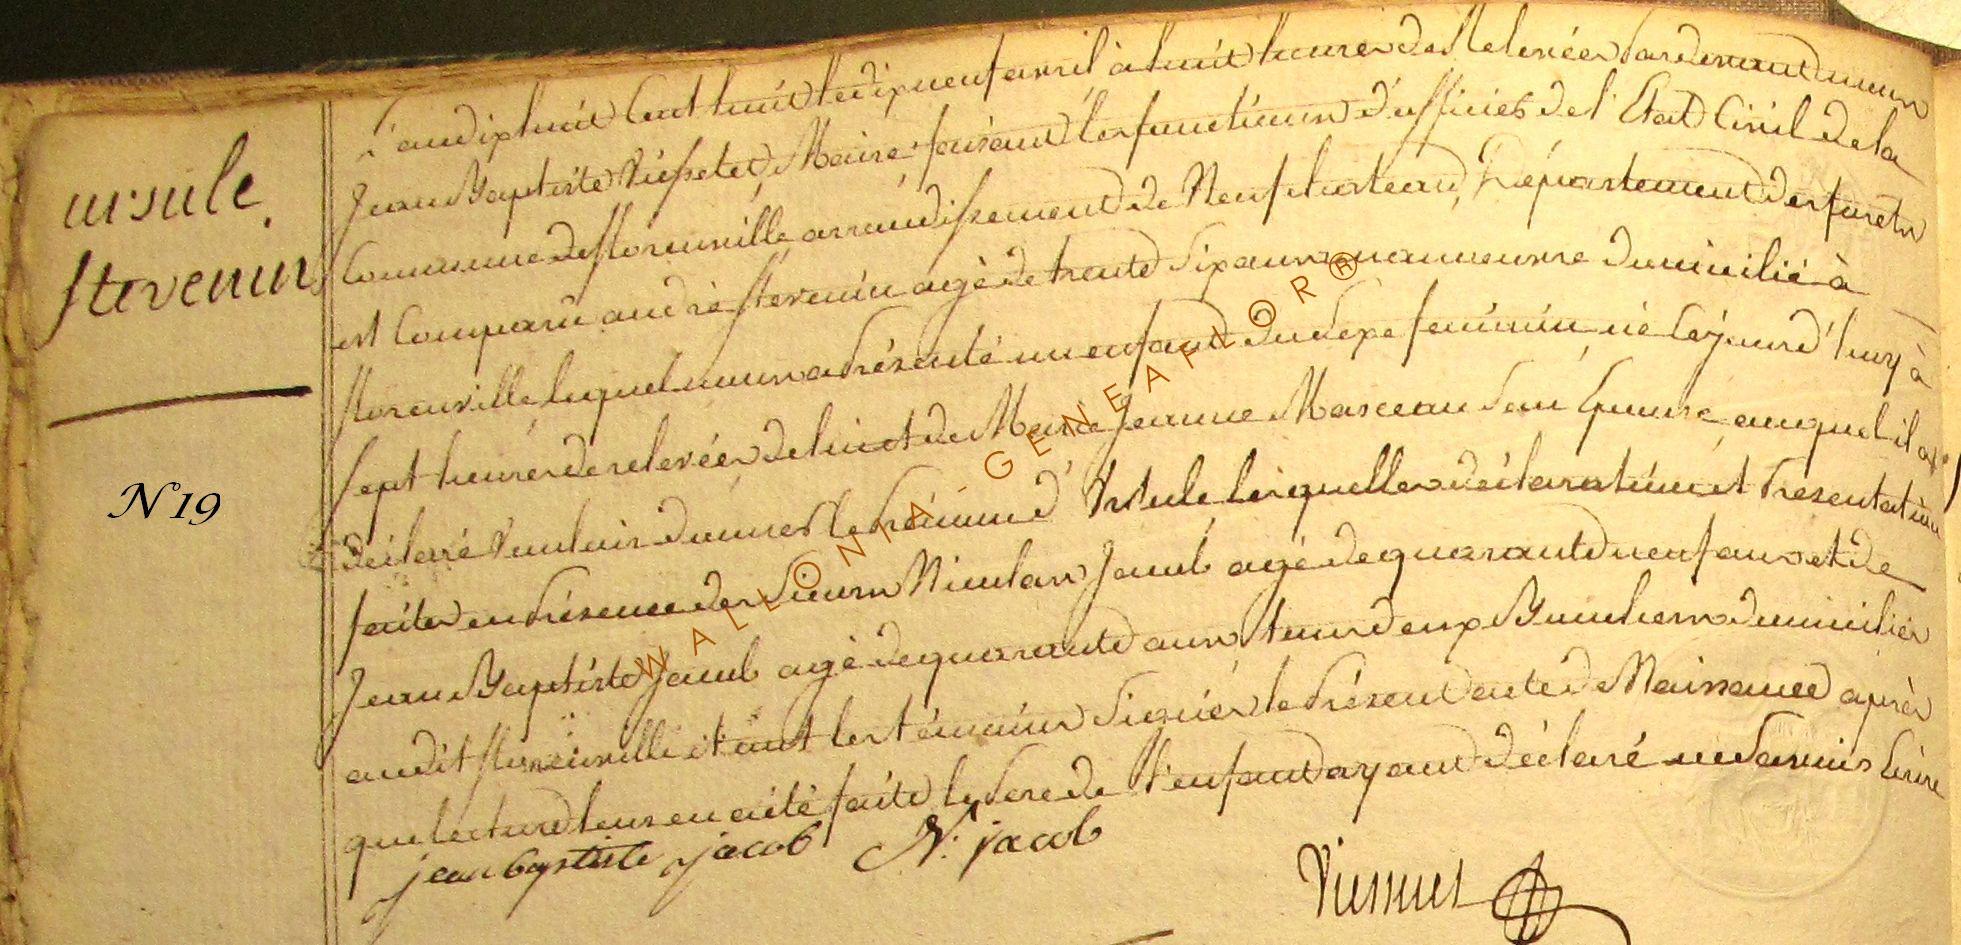 ursule
stevenin
N 19
L'an dix huit Cent huit le dix neuf avril à huit heures de Relevées Pardevant nous
Jean Baptiste Maire faisant les fonctions d'officier de l'Etat Civil de la
Commune de Florenville arrondissement de Neufchateau, Département des forêts
est Comparu andré stevenin agé de trente Six ans manoeuvre domicilié à
florenville lequel nous a Présenté un enfant du Sexe feminin né Cejourd'huy à
sept heures de relevées de luict de Marie Jeanne Marceau Son Epouse auquel il a
déclaré Vouloir donner le Prénom d'Ursule lesquelles déclaration et Presentation
faites en Présence des Sieurs Nicolas Jacob agé de quarante neuf ans et de
Jean Baptiste Jacob agé de quarante ans tous deux Bucherons domiciliés
audit florenville et ont les témoins Signés le Présent acte de Naissance après
que lecture leur en a été faite le Pere de l'enfant ayant déclaré ne Savoir Ecrire
jean baptiste jacob N. jacob
WALLONIA - GENEAFLOR®